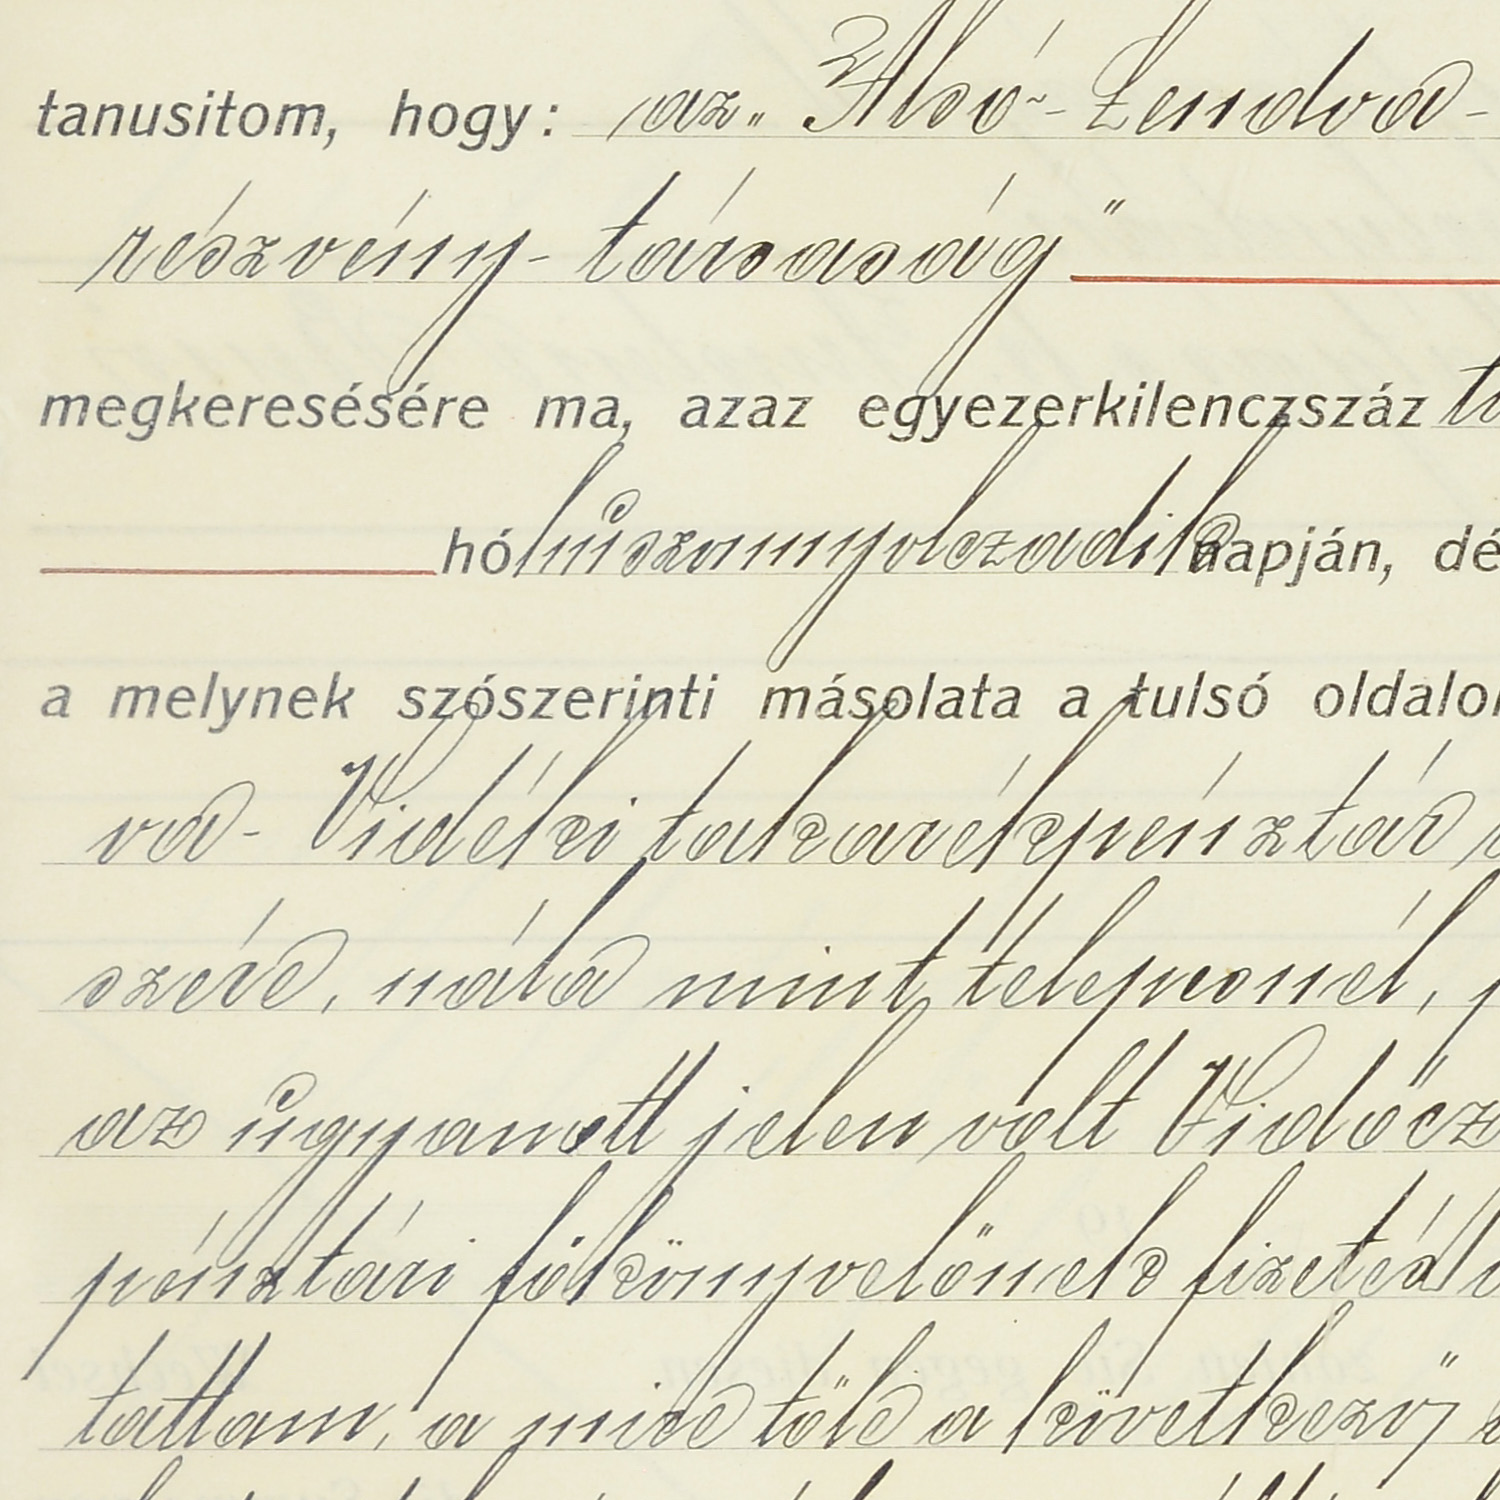 tanusitom, hogy: az „Alsó-Lendva-
részvény-társaság"
megkeresésére ma, azaz egyezerkilenczszáz
hó huszonnyolczadik napján, dé
a melynek szószerinti másolata a tulsó oldalon
va- Vidéki takarékpénztár
szére, nála mint telepesnél,
az ugyanott jelen volt Vidőcz
pénztári főkönyvelőnek fizetés
tattam, a mire tőle a következő